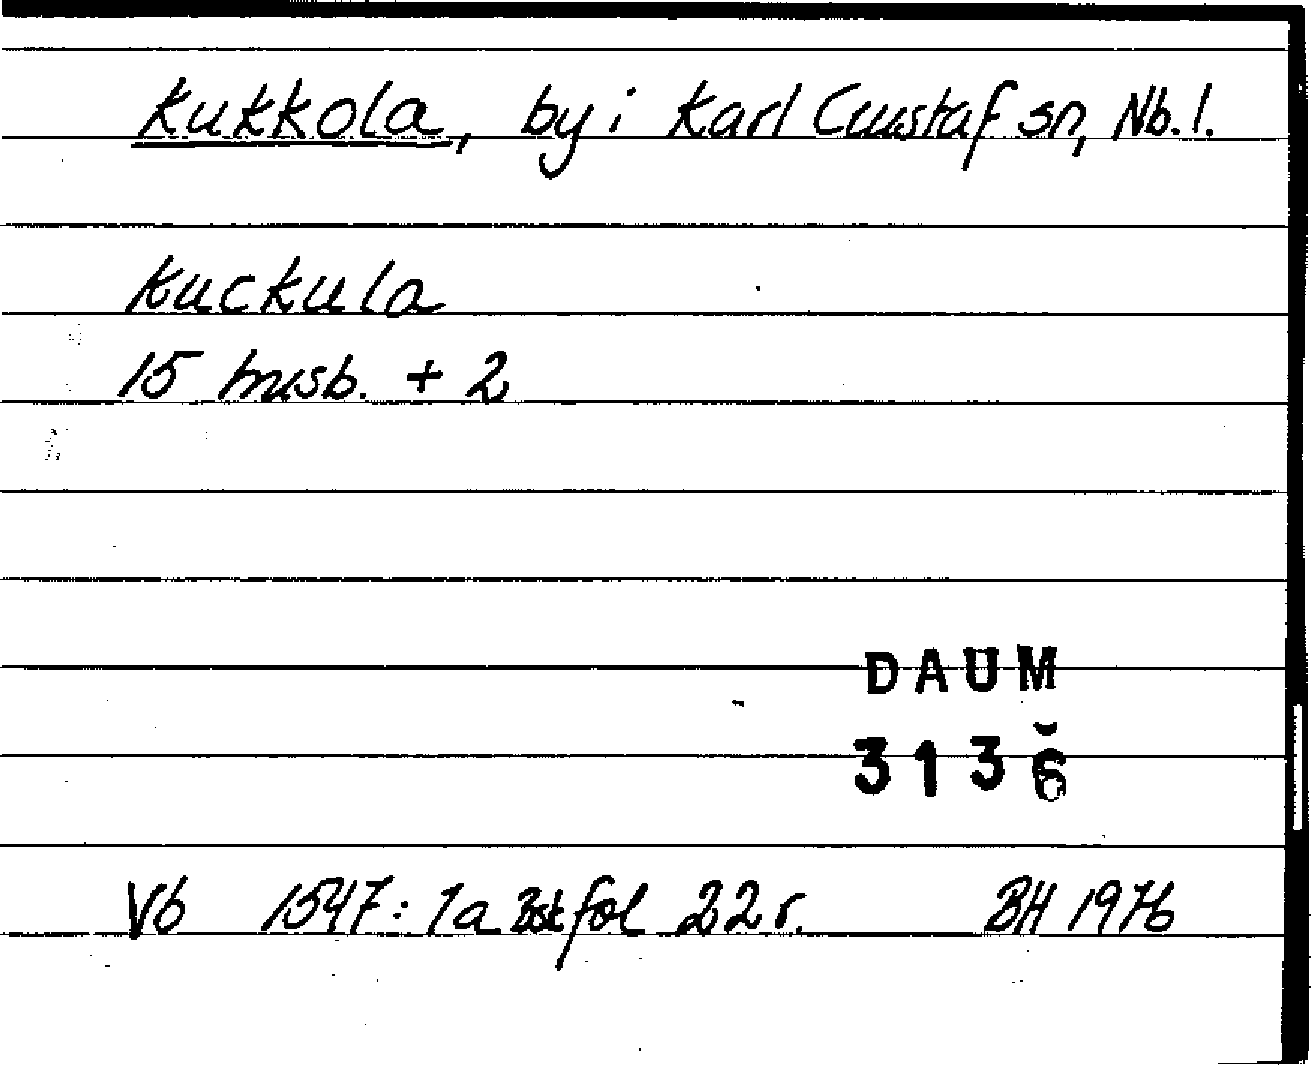 Kukkola, by i Karl Gustaf sn, Nb. l.
Kuckula
15 husb. + 2
DAUM
3136
Vb 1547: 1a Bsk fol 22 r. BH 1976